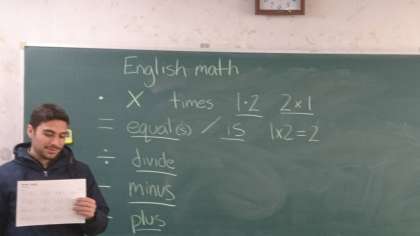 English math
· X times 1·2 2×1
= equal(s) / is 1×2=2
÷ divide
- minus
plus